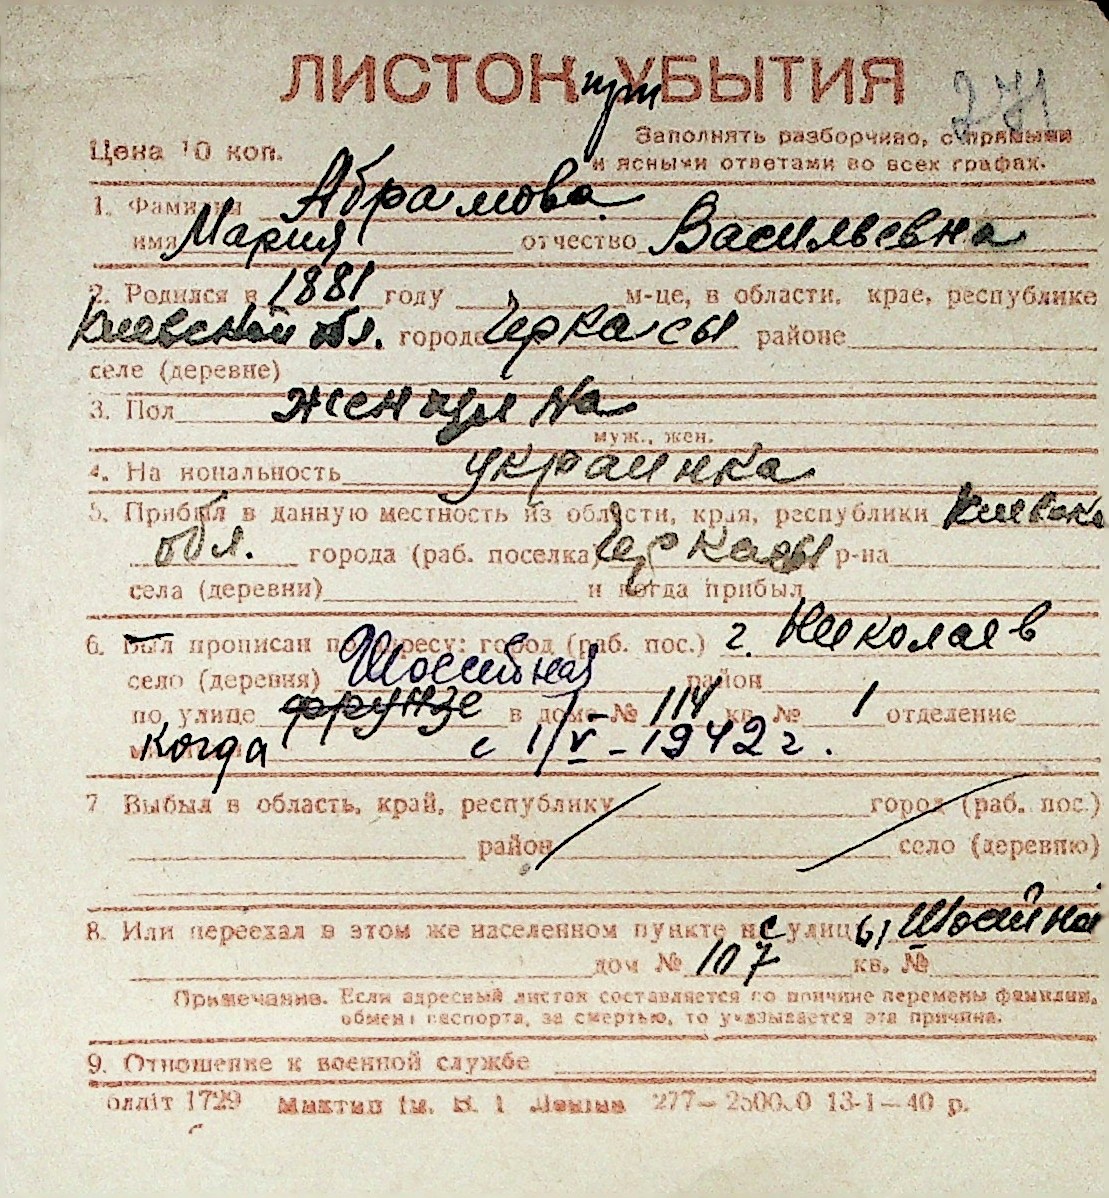 ЛИСТОК при УБЫТИЯ
271
Цена 10 коп.
Заполнять разборчиво, с прямыми
и ясными ответами во всех графах.
1. Фамилия Абрамова
имя Мария отчество Васильевна
2. Родился в 1881 году м-це, в области, крае, республике
Киевской обл. городе Черкасы районе
селе (деревне)
3. Пол женщина
муж., жен.
4. Национальность украинка
5. Прибыл в данную местность из области, края, республики Киевской
обл. города (раб. поселка) Черкасы р-на
села (деревни) и когда прибыл
6. Был прописан по адресу: город (раб. пос.) г. Николаев
село (деревня) Шоссейная район
по улице фрунзе в доме № 114 кв. № 1 отделение
когда с 1/V-1942 г.
7. Выбыл в область, край, республику город (раб. пос.)
район село (деревню)
8. Или переехал в этом же населенном пункте с улицы Шосейной
дом № 107 кв. №
Примечание. Если адресный листок составляется по причине перемены фамилии,
обмена паспорта, за смертью, то указывается эта причина.
9. Отношение к военной службе
блліт 1729 277— 13-1—40 р.